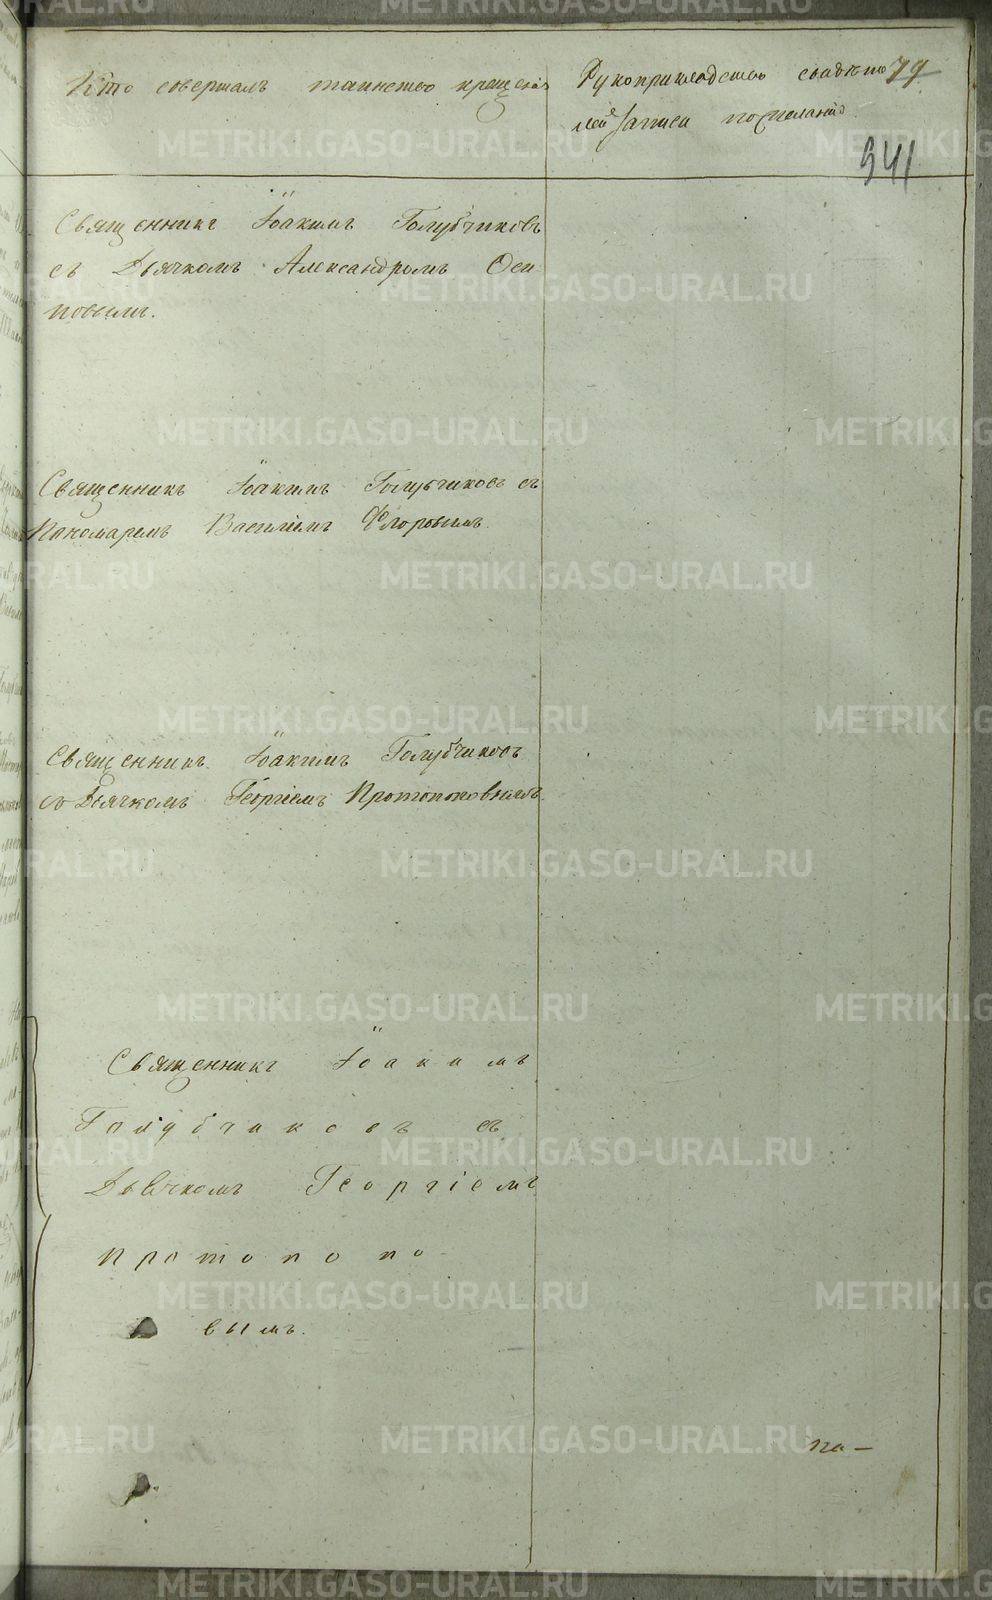 Кто совершалъ таинство крещенія
Рукоприкладство свидѣте 79
лей записи по желанію
941
Священникъ Іоакимъ Голубчиковъ
съ Дьячкомъ Александромъ Оси
повымъ.
Священникъ Іоакимъ Голубчиковъ съ
Пономаремъ Василіемъ Флоровымъ
Священникъ Іоакимъ Голубчиковъ
со Дьячкомъ Георгіемъ Протопоповымъ
Священникъ Іоакимъ
Голубчиковъ съ
Дьячкомъ Георгіемъ
Протопопо
вымъ.
по-
METRIKI.GASO-URAL.RU